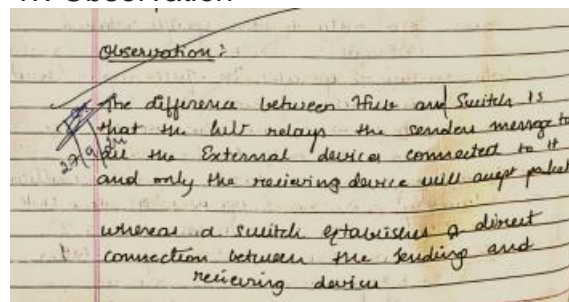 Observation:
The difference between Hub and Switch is
that the hub relays the senders message to
all the External devices connected to it
and only the recieving device will accept packet
whereas a switch establishes a direct
connection between the sending and
recieving device